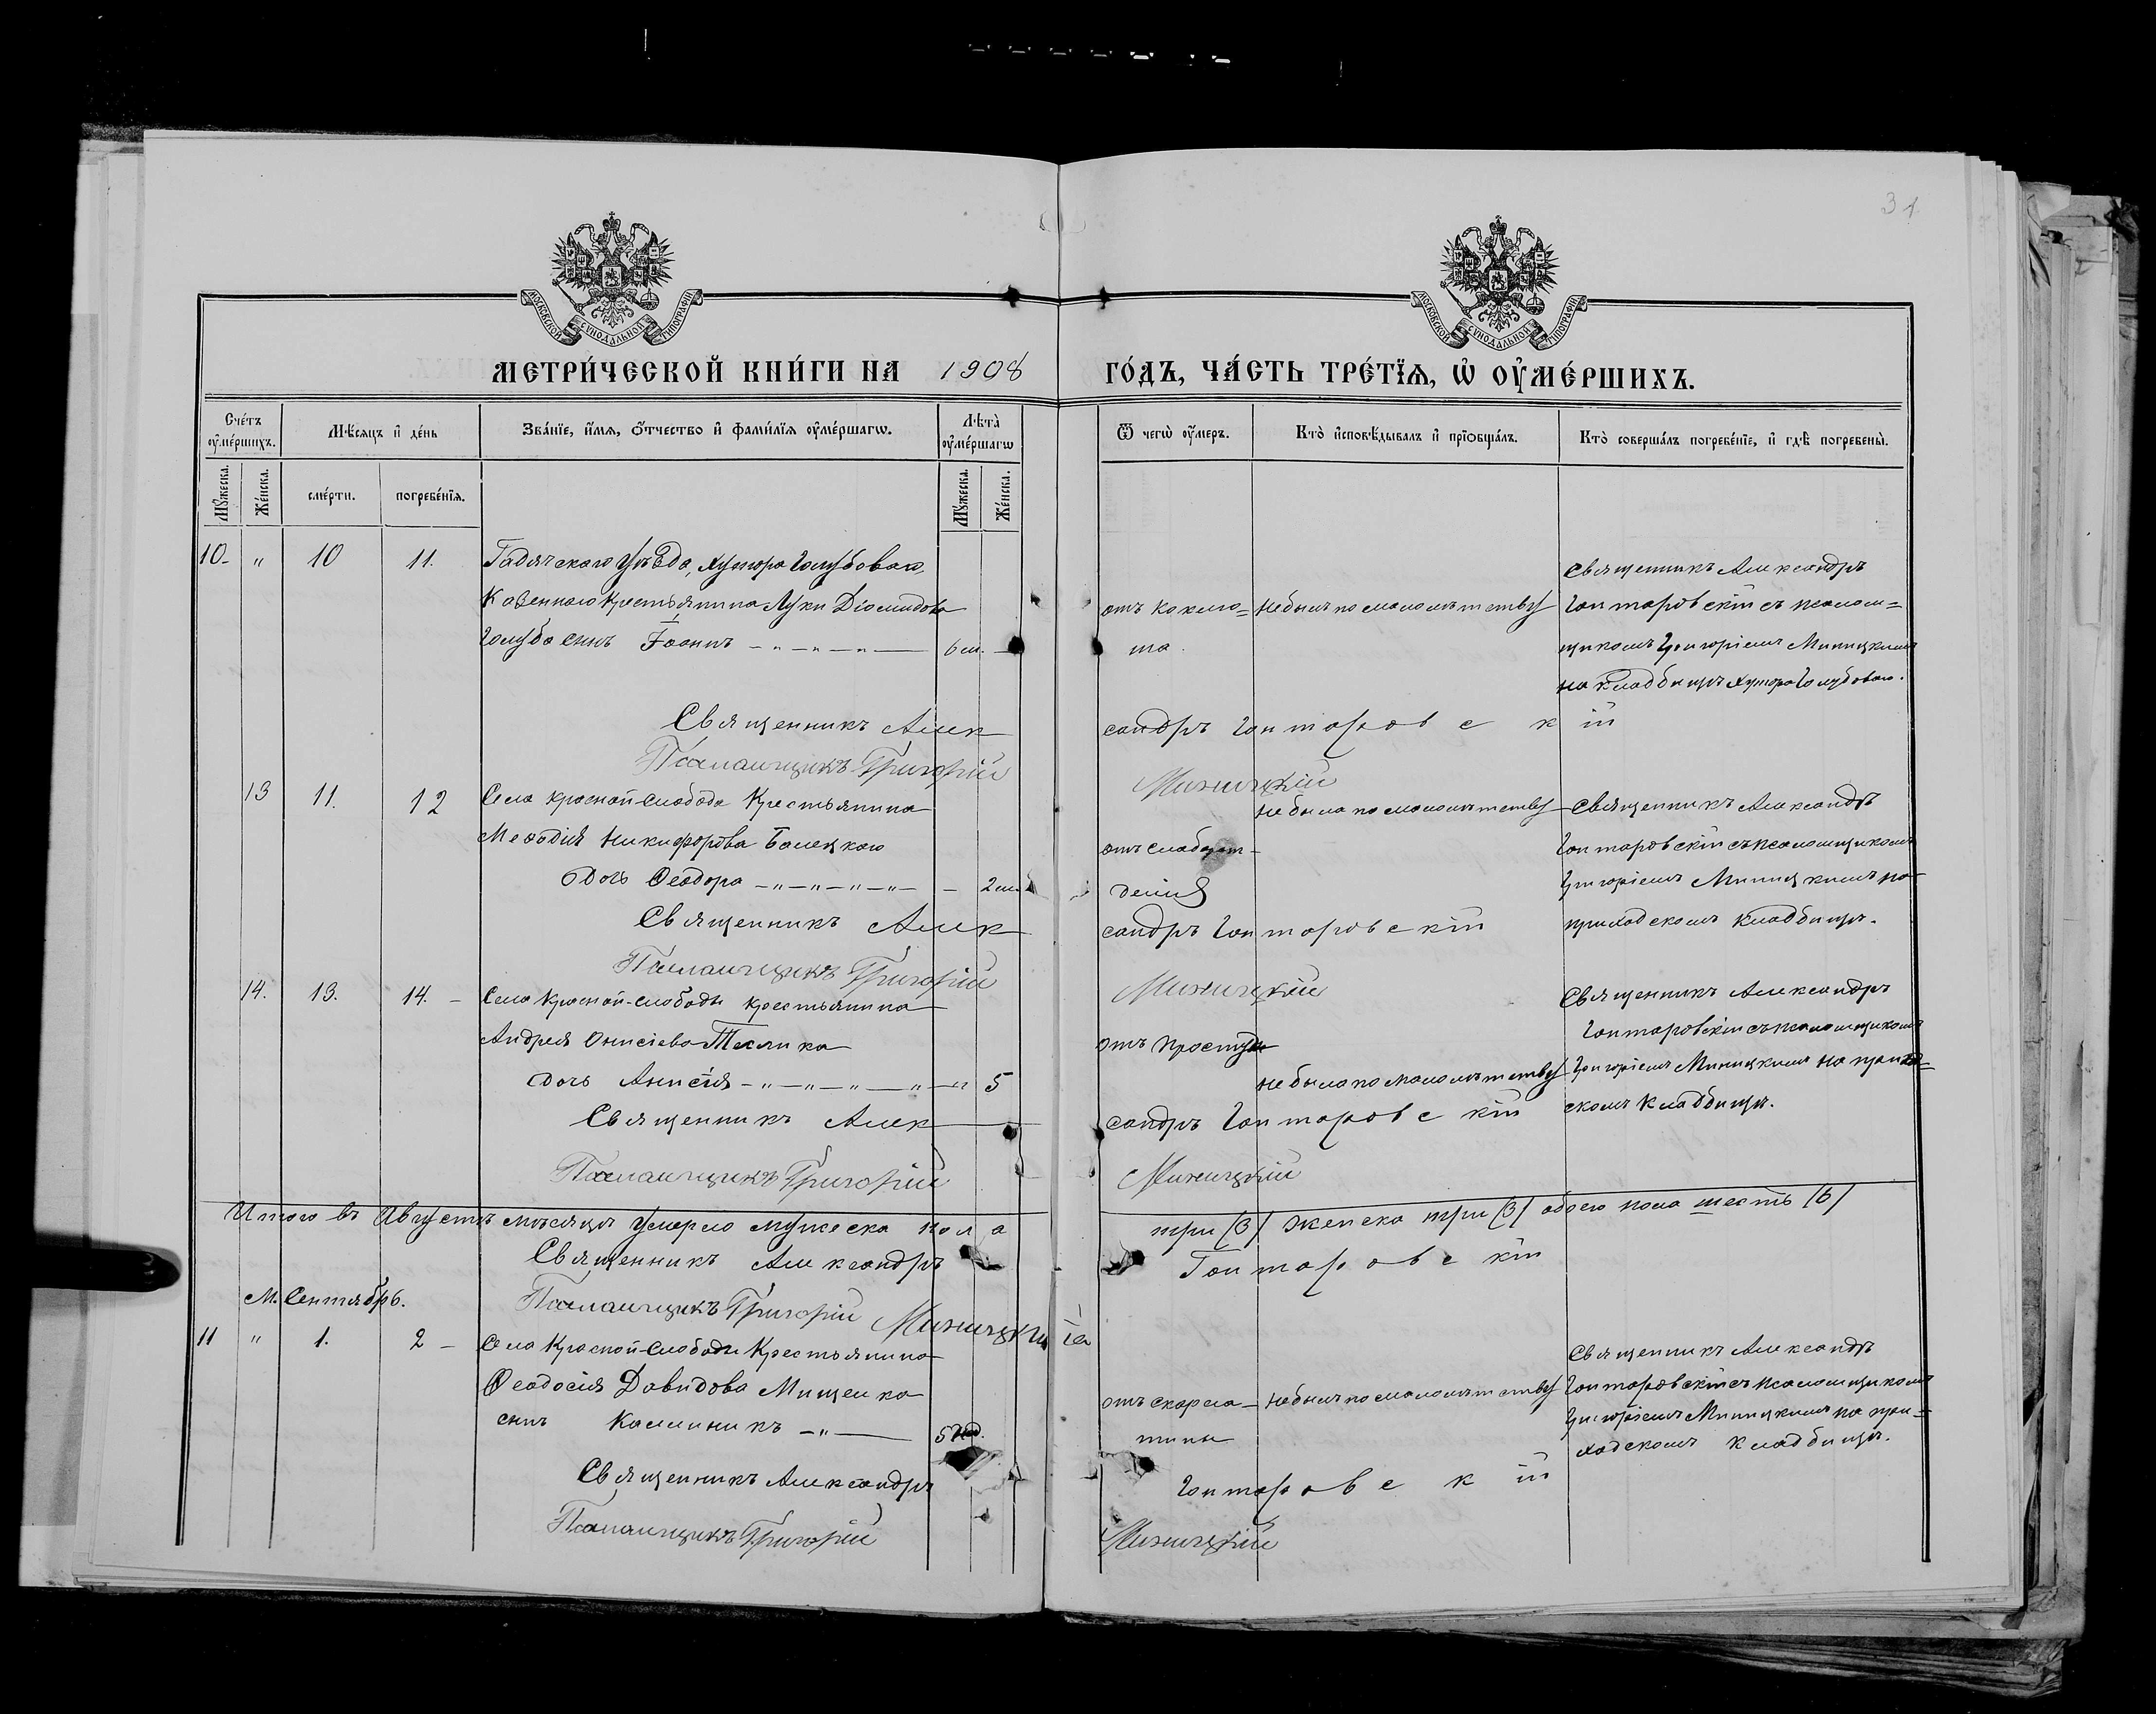 31.
МОСКОВСКОЙ СѴНОДАЛЬНОЙ ТИПОГРАФІИ
МОСКОВСКОЙ СѴНОДАЛЬНОЙ ТИПОГРАФІИ
МЕТРИ́ЧЕСКОЙ КНИ́ГИ НА 1908 ГО́ДЪ, ЧА́СТЬ ТРЕ́ТЇѦ, Ѡ҆ ОУ҆МЕ́РШИХЪ.
Сче́тъ оу҆ме́ршихъ.
Мѣ́сяцъ и҆ де́нь
Зва́нїе, и҆́мѧ, ѻ҆́тчество и҆ фами́лїѧ оу҆ме́ршагѡ.
Лѣта̀ оу҆ме́ршагѡ
Ѿ чегѡ̀ оу҆́меръ.
Кто̀ и҆сповѣ́дывалъ и҆ прїѡбща́лъ.
Кто̀ соверша́лъ погребе́нїе, и҆ гдѣ̀ погребены̀.
Мꙋ́жеска. Же́нска. сме́рти. погребе́нїѧ. Мꙋ́жеска. Же́нска.
10. " 10 11. Гадячскаго уѣзда, хутора Голубоваго,
Казеннаго крестьянина Луки Діомидова
Голуба сынъ Іоаннъ 6 м.
отъ коклю=
ша.
не былъ по малолѣтству
Священникъ Александръ
Гонторовскій съ псалом=
щикомъ Григоріемъ Миницкимъ
на кладбищѣ хутора Голубоваго.
Священникъ Александръ Гонторовскій
Псаломщикъ Григорій Миницкій
13 11. 12 Села Красной-Слободы Крестьянина
Меѳодія Никифорова Балецкаго
дочь Ѳеодора 2 м.
отъ слабаго
не была по малолѣтству
Священникъ Александръ
Гонторовскій съ псаломщикомъ
Григоріемъ Миницкимъ на
приходскомъ кладбищѣ.
Священникъ Александръ Гонторовскій
Псаломщикъ Григорій Миницкій
14. 13. 14. Села Красной-Слободы крестьянина
Андрея Онисіева
дочь Анисія 5
отъ простуды
не была по малолѣтству
Священникъ Александръ
Гонторовскій съ псаломщикомъ
Григоріемъ Миницкимъ на приход=
скомъ кладбищѣ.
Священникъ Александръ Гонторовскій
Псаломщикъ Григорій Миницкій
Итого въ Августѣ мѣсяцѣ умерло мужеска пола три (3) женска три (3) обоего пола шесть (6)
Священникъ Александръ Гонторовскій
Псаломщикъ Григорій Миницкій
М. Сентябрь.
11 " 1. 2 Села Красной-Слободы Крестьянина
Ѳеодосія Давидова Мищенка
сынъ Каллиникъ 5 нед.
отъ скарла=
тины
не былъ по малолѣтству
Священникъ Александръ
Гонторовскій съ псаломщикомъ
Григоріемъ Миницкимъ на при=
ходскомъ кладбищѣ.
Священникъ Александръ Гонторовскій
Псаломщикъ Григорій Миницкій